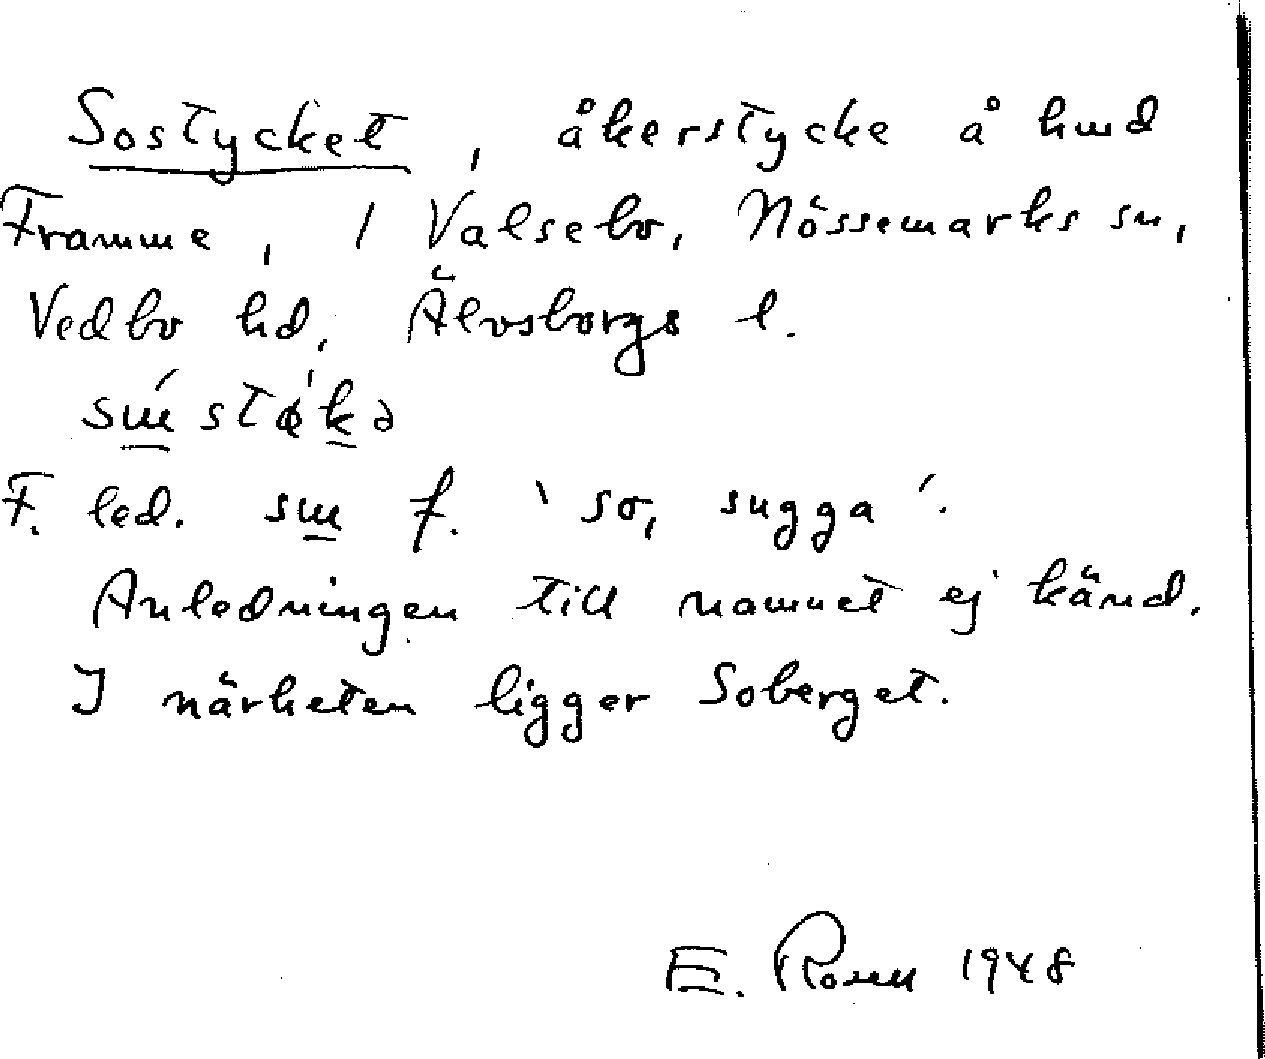 Sostycket, åkerstycke å hmd
Framme, 1 Valsebo, Nössemarks sn,
Vedbo hd, Älvsborgs l.
F. led. su f. 'so, sugga'.
Anledningen till namnet ej känd.
I närheten ligger Soberget.
E. 1948